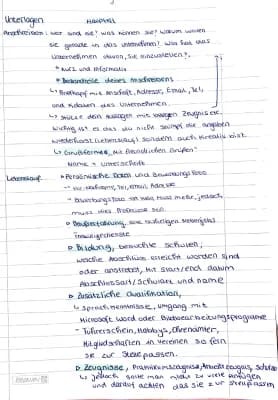 Unterlagen Hauptteil
Anschreiben: wer sind sie? was können sie? Warum wollen
sie gerade in das unternehmen? Was hat das
Unternehmen davon, sie einzustellen?
• kurz und informativ
• Bestandteile deines Anschreibens
↳ Briefkopf mit Anschrift, Adresse, Email, Tel,
und Adresse des Unternehmens
↳ Stütze dein aussagen mit Zeugnis etc.
wichtig ist es das du nicht die angaben
wiederholst (Lebenslauf) sondern auch kreativ bist
↳ Grußformel, Mit freundlichen Grüßen
Name + Unterschrift
Lebenslauf • Persönliche Daten und Bewerbungsfoto
↳ Vor, Nachname, Tel, Email, Adresse
- Bewerbungsfoto mehr, jedoch,
muss dies Professionell sein
▷ Berufserfahrung,
▷ Bildung, besuchte Schulen,
welche Abschlüsse erreicht worden sind
oder anstrebst, mit start/end datum
Abschlussart/Schulart und name
▷ Zusätzliche Qualifikation,
↳ Sprachkenntnisse, umgang mit
Microsoft word oder Bildbearbeitungsprogramme
- Führerschein, Hobbys, Ehrenämter,
Mitgliedschaften in Vereinen sofern
sie zur Stelle passen.
▷ Zeugnisse, Praktikumszeugnisse, Arbeitszeugnis, Schulzeug
↳ jedoch sollte man nicht zu viele anfügen
und darauf achten das sie zur stelle passen